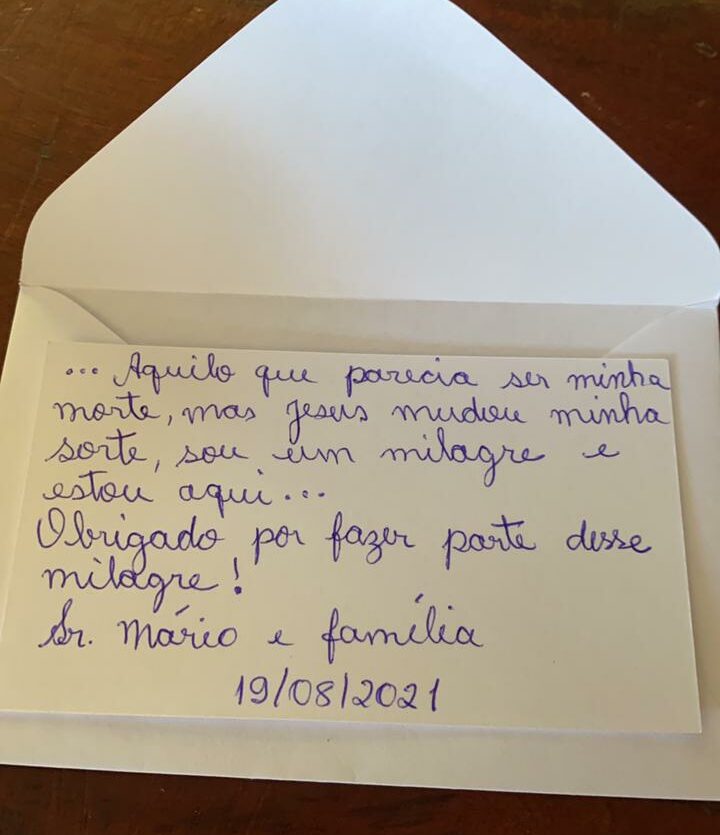 ... Aquilo que parecia ser minha
morte, mas Jesus mudou minha
sorte, sou um milagre e
estou aqui...
Obrigado por fazer parte desse
milagre!
Sr. Mário e família
19/08/2021